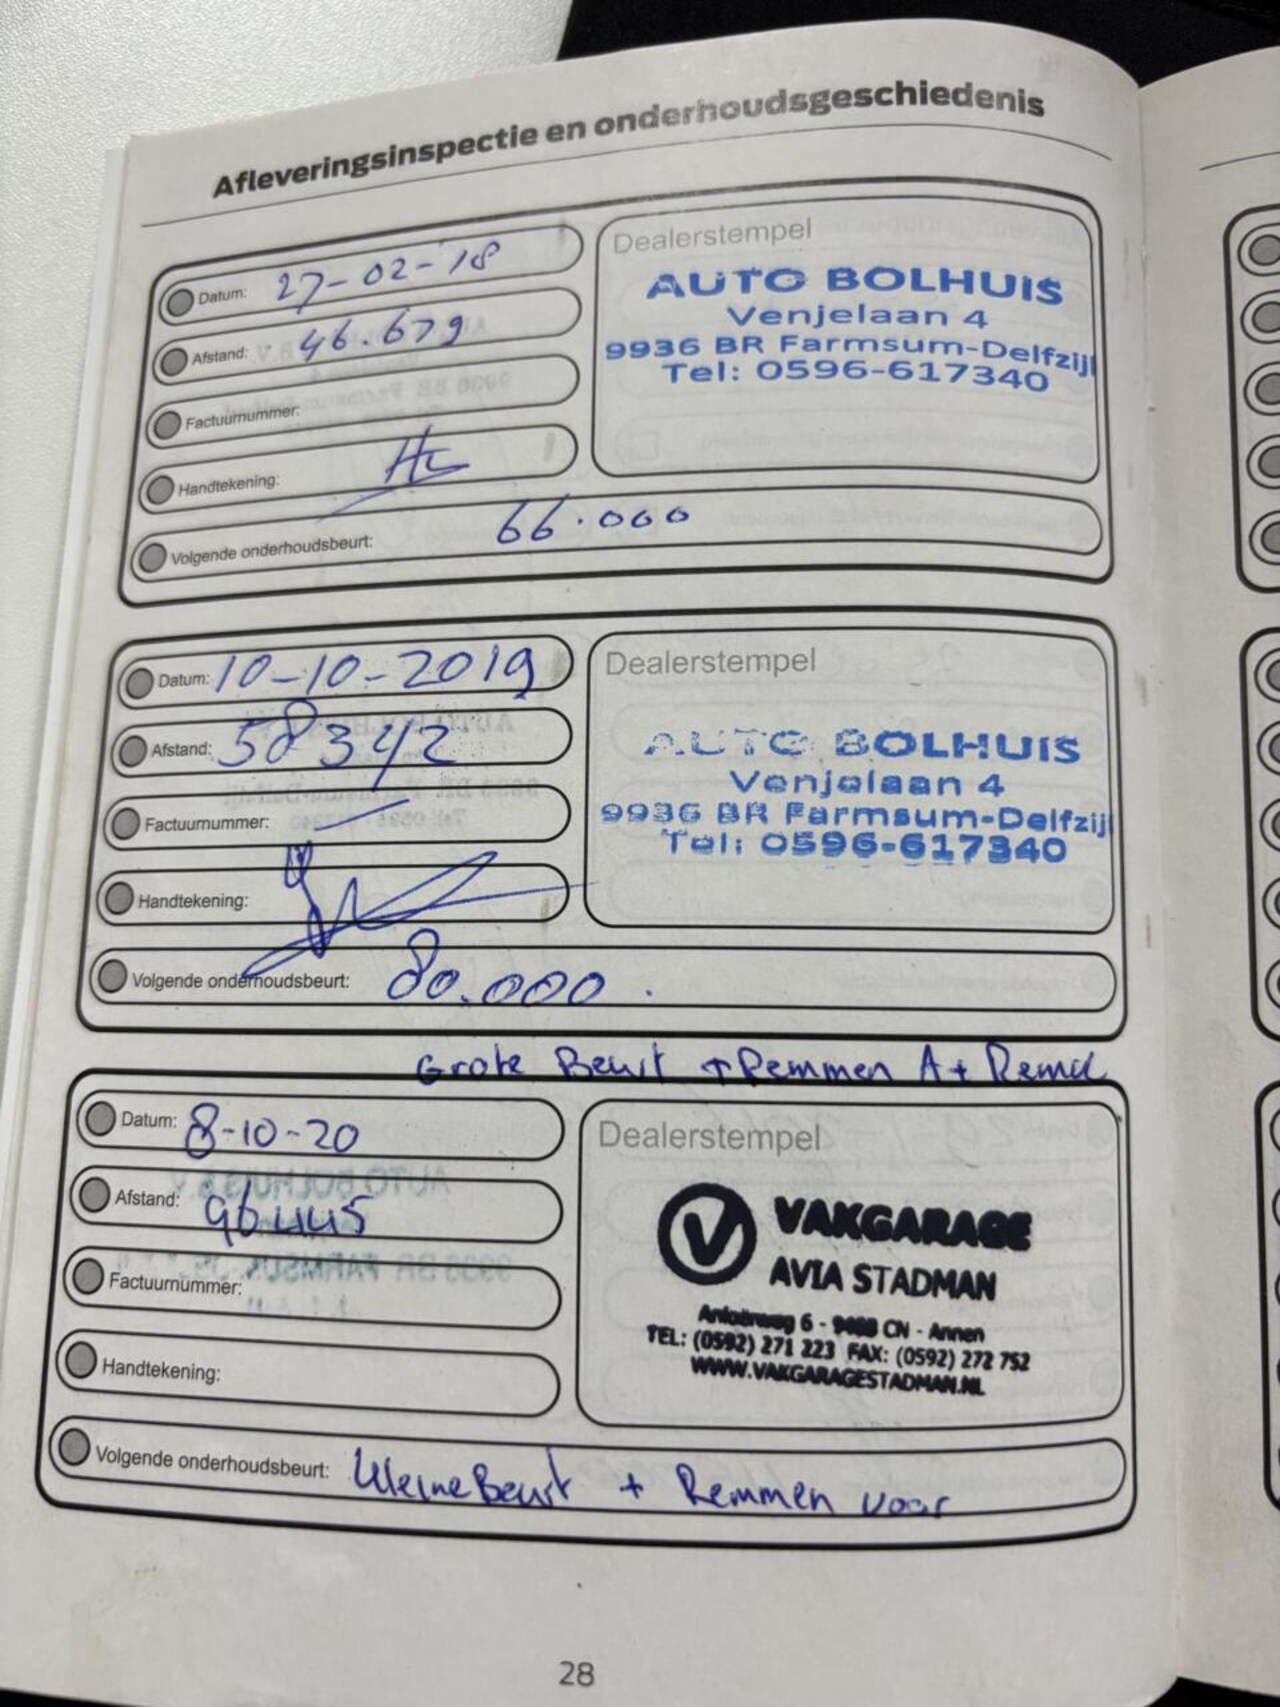 Afleveringsinspectie en onderhoudsgeschiedenis
Datum: 27-02-18
Afstand: 46.679
Factuurnummer:
Handtekening:
Volgende onderhoudsbeurt: 66.000
Dealerstempel
AUTO BOLHUIS
Venjelaan 4
9936 BR Farmsum-Delfzijl
Tel: 0596-617340
Datum: 10-10-2019
Afstand: 58342
Factuurnummer: —
Handtekening:
Volgende onderhoudsbeurt: 80.000.
Dealerstempel
AUTO BOLHUIS
Venjelaan 4
9936 BR Farmsum-Delfzijl
Tel: 0596-617340
Grote Beurt + Remmen A +
Datum: 8-10-20
Afstand: 96445
Factuurnummer:
Handtekening:
Volgende onderhoudsbeurt: Kleine Beurt + Remmen voor
Dealerstempel
VAKGARAGE
AVIA STADMAN
6 - CN - Annen
TEL: (0592) 271 223 FAX: (0592) 272 752
WWW.VAKGARAGESTADMAN.NL
28